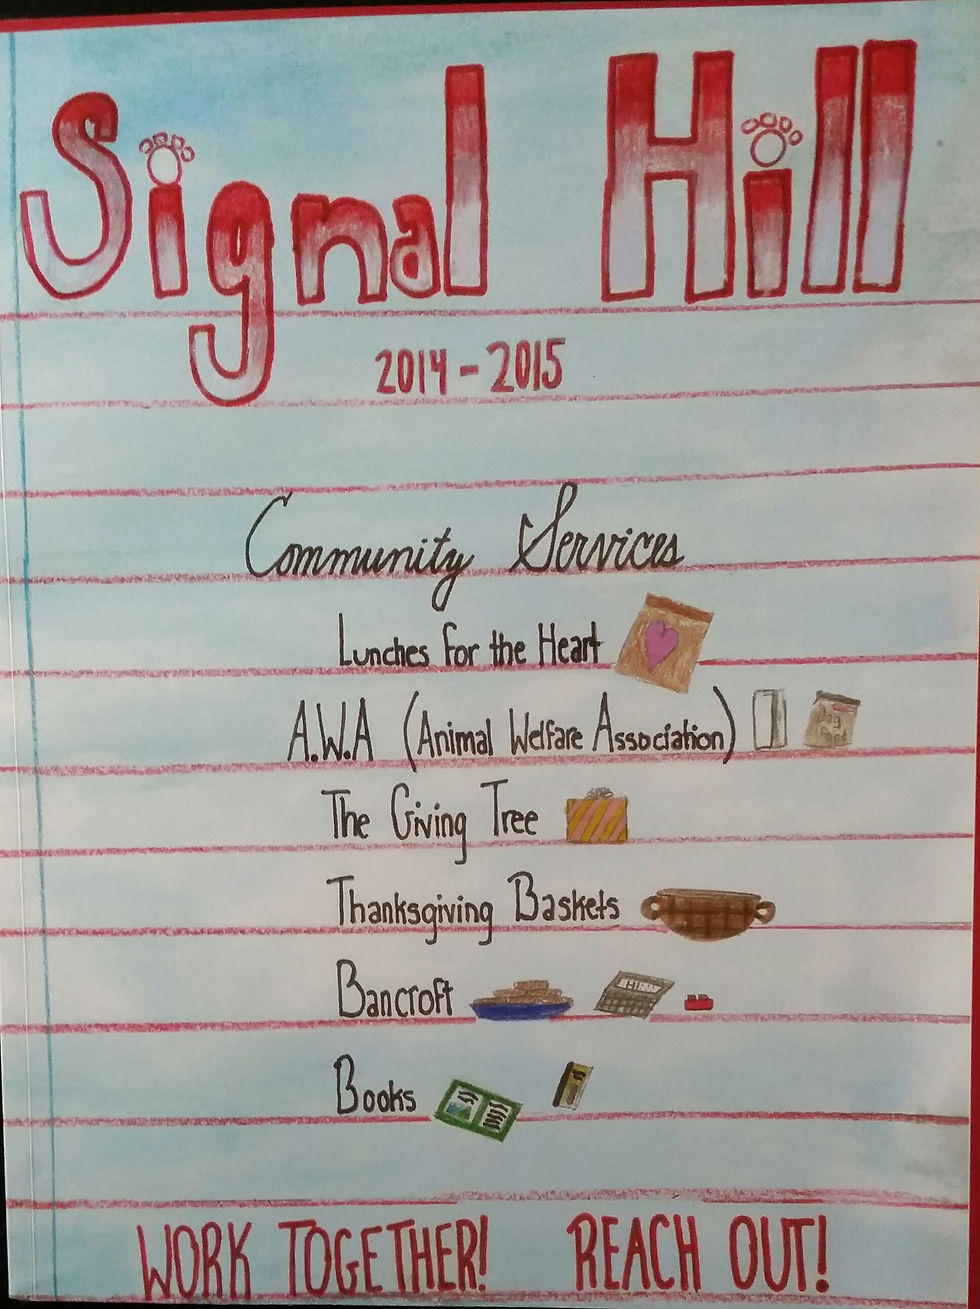 Signal Hill
2014-2015
Community Services
Lunches for the Heart
A.W.A (Animal Welfare Association)
Dog Food
The Giving Tree
Thanksgiving Baskets
Bancroft
Books
WORK TOGETHER! REACH OUT!